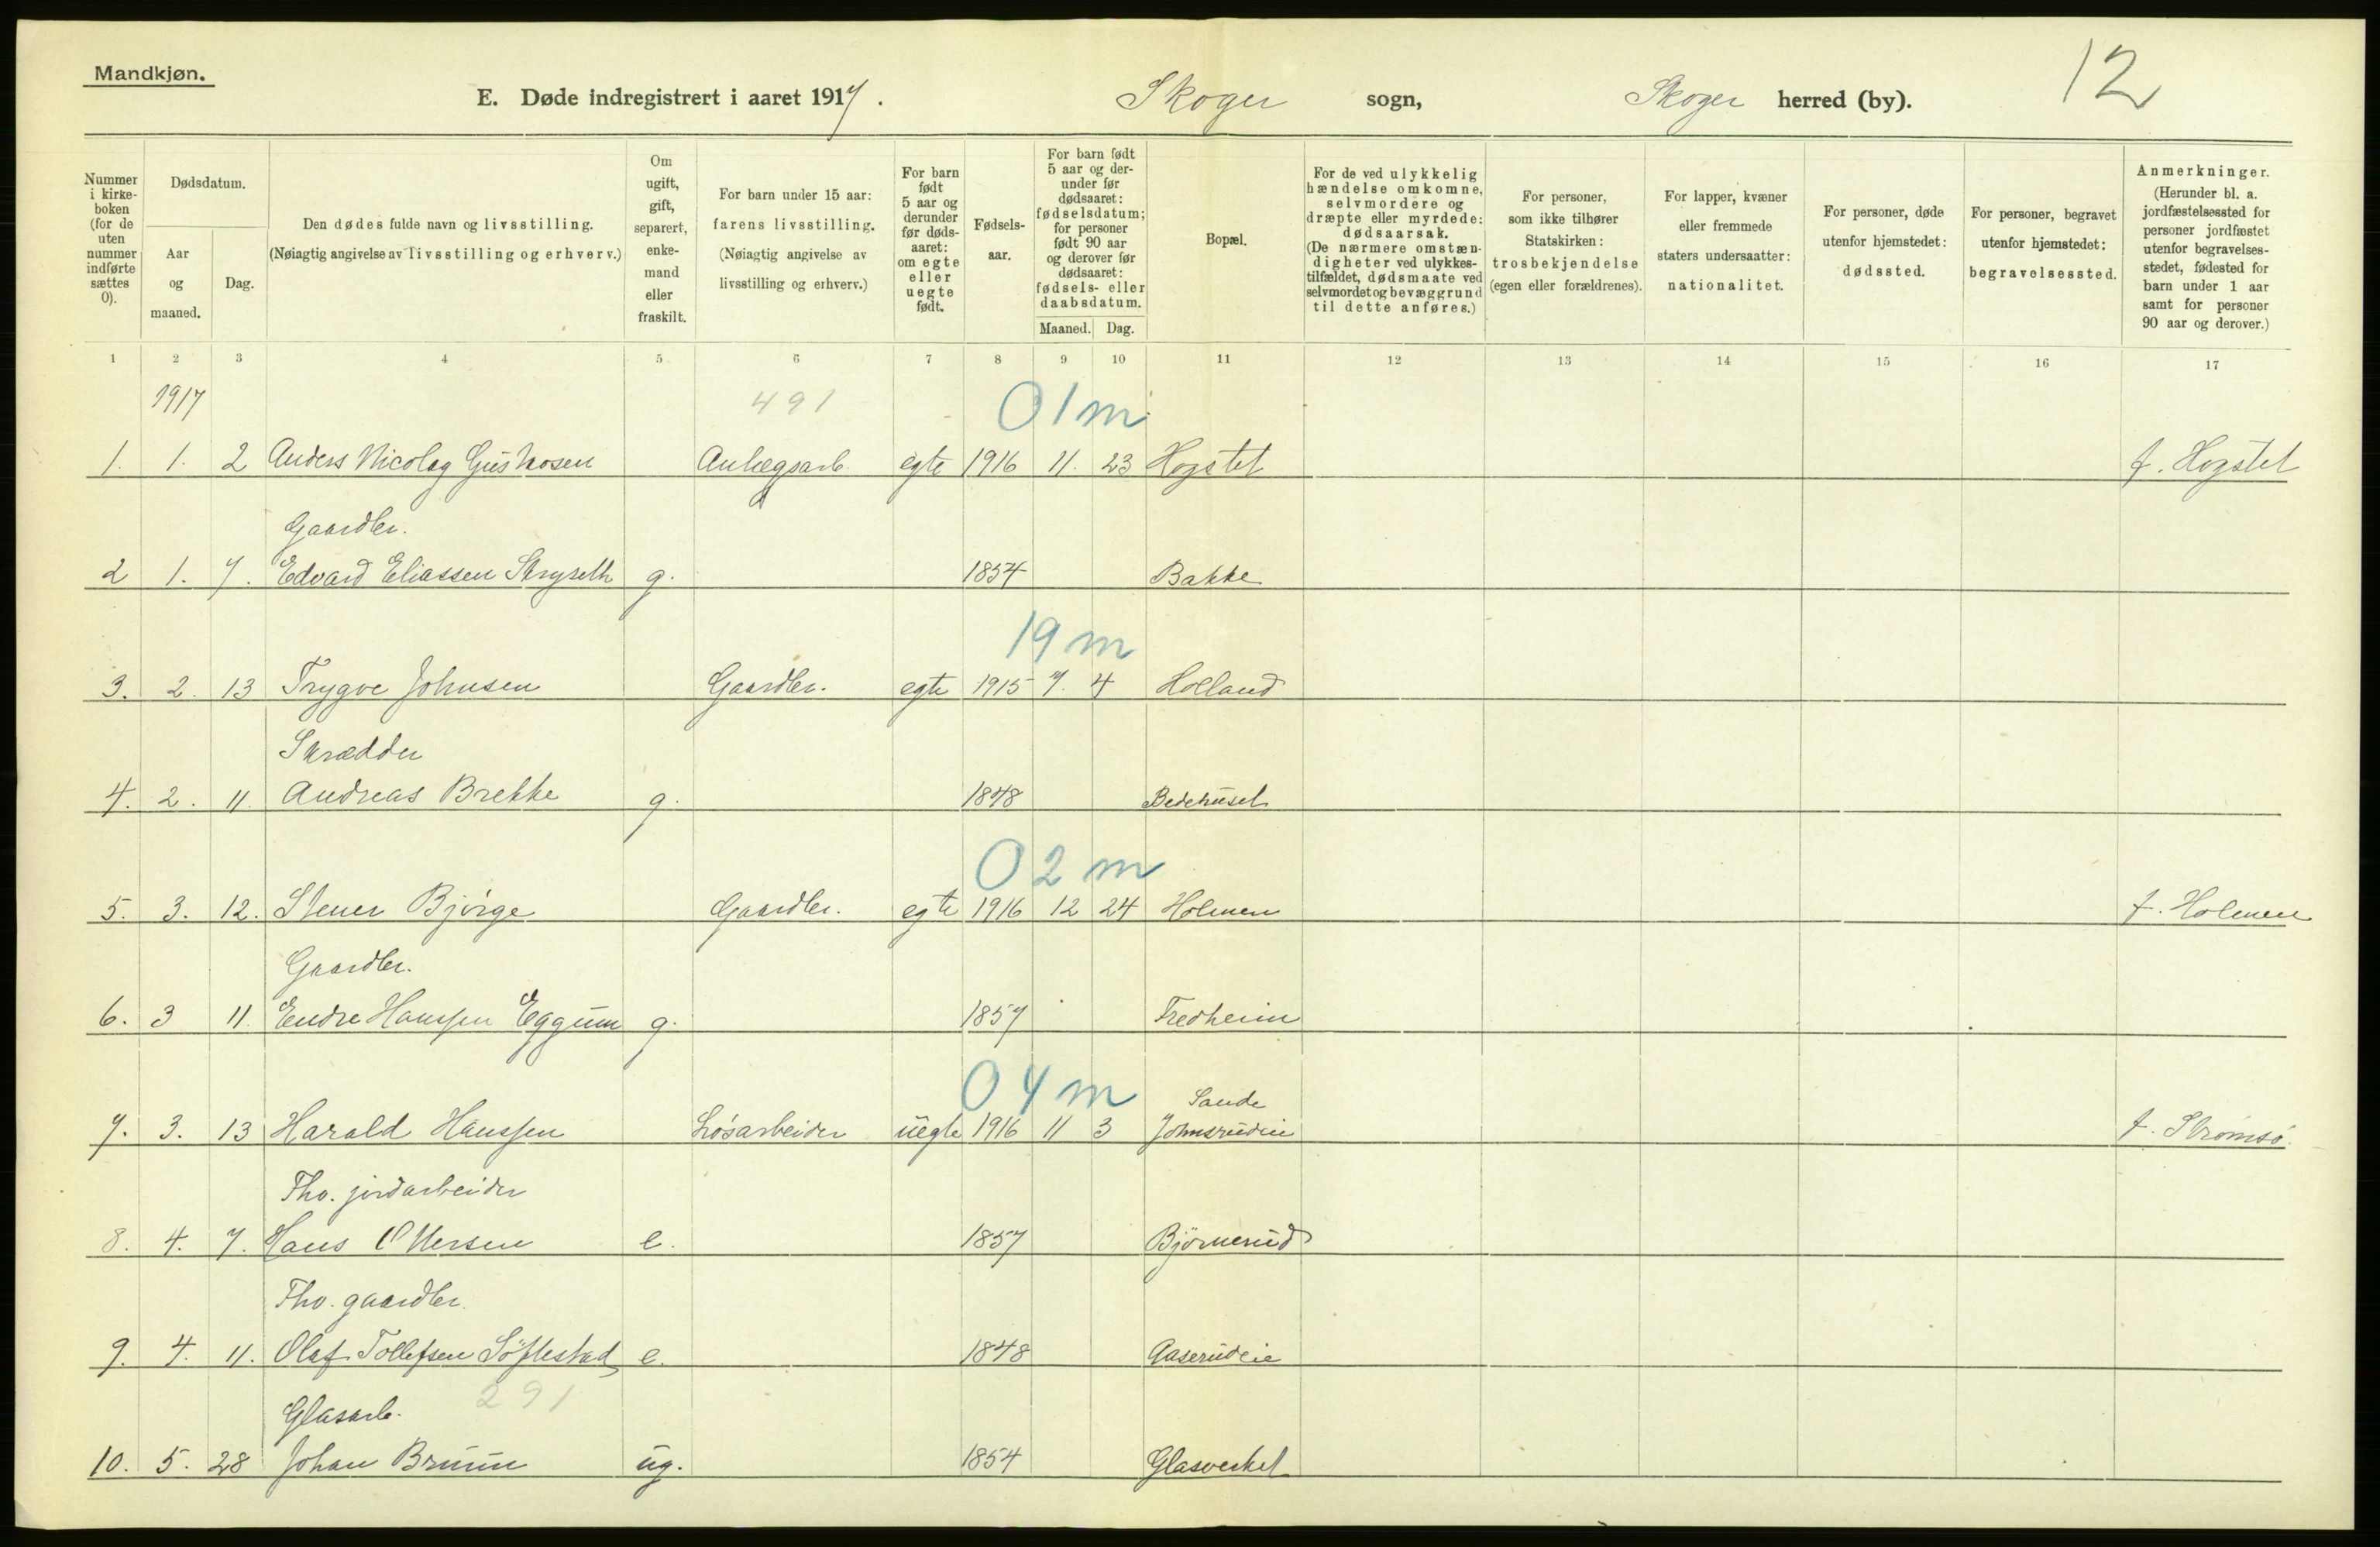 Mandkjøn.
12
E. Døde indregistrert i aaret 1917. Skoger sogn, Skoger herred (by).
Nummer i kirke-boken (for de uten nummer indførte sættes 0).
Dødsdatum.
Aar og maaned.
Dag.
Den dødes fulde navn og livsstilling.
(Nøiagtig angivelse av livsstilling og erhverv.)
Om ugift, gift, separert, enke-mand eller fraskilt.
For barn under 15 aar: farens livsstilling. (Nøiagtig angivelse av livsstilling og erhverv.)
For barn født 5 aar og derunder før døds-aaret: om egte eller uegte født.
Fødsels-aar.
For barn født 5 aar og der-under før dødsaaret: fødselsdatum; for personer født 90 aar og derover før dødsaaret: fødsels- eller daabsdatum.
Maaned. Dag.
Bopæl.
For de ved ulykkelig hændelse omkomne, selvmordere og dræpte eller myrdede: dødsaarsak. (De nærmere omstæn-digheter ved ulykkes-tilfældet, dødsmaate ved selvmordet og bevæggrund til dette anføres.)
For personer, som ikke tilhører Statskirken: trosbekjendelse (egen eller forældrenes).
For lapper, kvæner eller fremmede staters undersaatter: nationalitet.
For personer, døde utenfor hjemstedet: dødssted.
For personer, begravet utenfor hjemstedet: begravelsessted.
Anmerkninger. (Herunder bl. a. jordfæstelsessted for personer jordfæstet utenfor begravelses-stedet, fødested for barn under 1 aar samt for personer 90 aar og derover.)
1 2 3 4 5 6 7 8 9 10 11 12 13 14 15 16 17
1917 491 01m
1. 1. 2 Anders Nicolay Gustavsen Anlægsarb. egte 1916 11. 23 Hogstet f. Hogstet
Gaardbr.
2 1. 7. Edvard Eliassen Skryseth g. 1854 Bakke
19 m
3. 2. 13 Trygve Johnsen Gaardbr. egte 1915 7. 4 Holland
Skrædder
4. 2. 11. Andreas Brekke g. 1848 Bedehuset
02 m
5. 3. 12. Stener Bjørge Gaardbr. egte 1916 12 24 Holmen f. Holmen
Gaardbr.
6. 3 11. Endre Hanssen Eggum g. 1857 Fredheim
04 m
Sande
7. 3. 13 Harald Hanssen Løsarbeider uegte 1916 11 3 Johnsrudeie f. Strømsø.
Fho. jordarbeider
8. 4. 7. Hans Ottersen e. 1857 Bjørnerud
Fho. gaardbr.
9. 4. 11. Olaf Tollefsen Søftestad e. 1848 Aaserudeie
Glasarb. 291
10. 5. 28 Johan Bruun ug. 1854 Glasverket